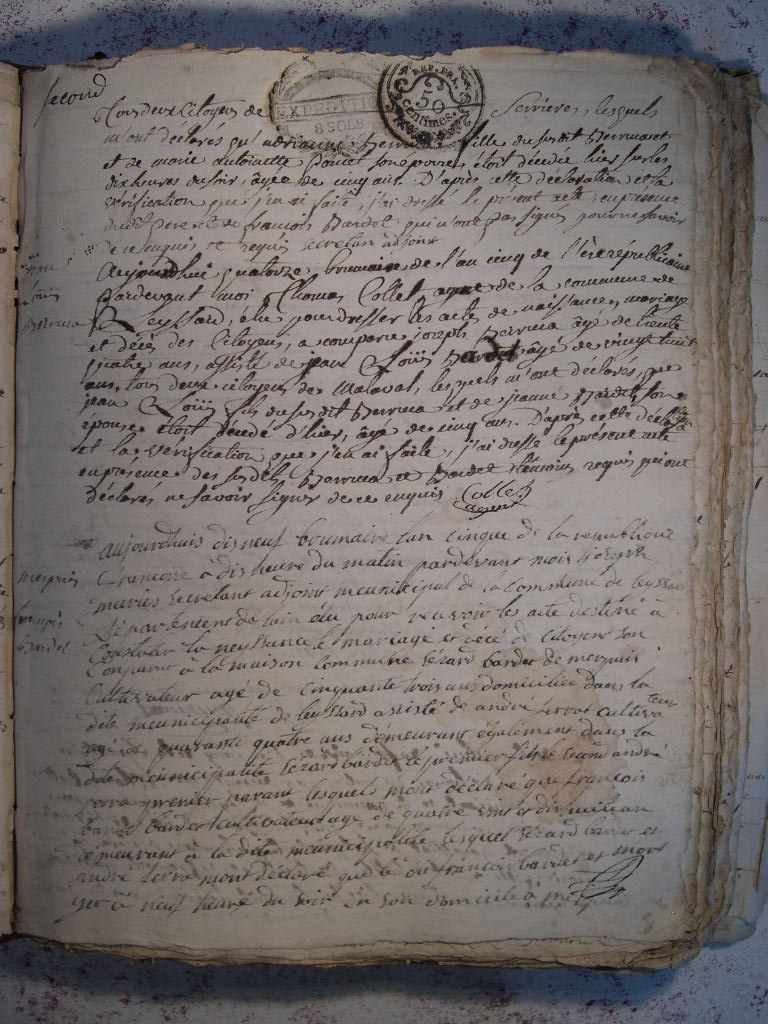 second
EXPEDITION
8 SOLS
REP. FRA.
50
centimes.
Tous deux Citoyens de Serrieres, lesquels
m'ont declarés qu' fille du susdit
et de marie antoinette Poncet son epouse, étoit décedée hier sur les
dix heures du soir, âgée de cinq ans. D'après cette déclaration et la
vérification que j'en ai faite, j'ai dressé le présent acte, en presence
dudit pere et de françois Bardet, qui n'ont pas signés pour ne savoir
de ce enquis et requis secretan adjoint
Aujourdhui quatorze brumaire de l'an cinq de l'ère républicaine
Pardevant moi Thomas Collet agent de la commune de
Leyssard, élu pour dresser les actes de naissances, mariage
et décés des Citoyens, a comparu joseph Berruca âgé de trente
quatre ans, assisté de jean Loüis Bardet âgé de vingt huit
ans, tous deux citoyens de Malaval, lesquels m'ont déclarés, que
jean Loüis fils du susdit Berruca et de jeanne Bardet son
epouse étoit décédé d'hier, âgé de cinq ans. D'après cette déclaration
et la vérification que j'en ai faite, j'ai dressé le présent acte
en présence des susdits Berruca et Bardet témoins requis qui ont
déclarés ne savoir signer de ce enquis Collet
agent
françois
Bardet
aujourdhuis disneuf broumaire lan cinque de la republique
francoise a dis heure du matin pardevant mois joseph
maries secretant adjoint meunicipal de la Commune de leyssard
Département de lain élu pour recevoir les acte destiné à
Constater la neyssance le mariage et décé de Citoyens son
Comparut à la maison Commune Gérard bardet de merpuis
Cultivateur agé de Cinquante trois ans domiciliée dans la
dite meunicipalité de leyssard assisté de andré ferrat cultivateur
agé de quarante quatre ans demeurant également dans la
dite meunicipalité Gérard bardet le premier fils le second andré
ferra premier parant lesquels mont declaré que francois
bardet cultivateur age de quatre vint et dis
demeurant à la dite meunicipalité lesquel Gérard bardet et
andré ferra mont declaré que le dit françois bardet et mort
yer à neuf heure du soir en son domicile à